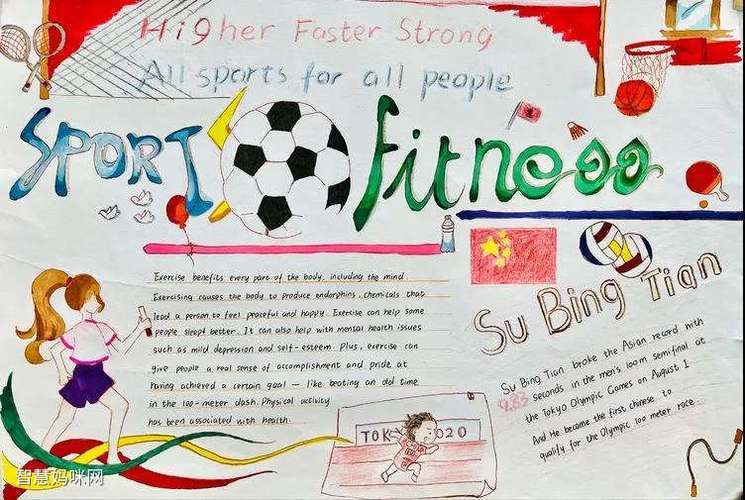 Higher Faster Strong
All sports for all people
SPORT
fitness
Exercise benefits every part of the body, including the mind.
Exercising causes the body to produce endorphins, chemicals that
lead a person to feel peaceful and happy. Exercise can help some
people sleept better. It can also help with mental health issues
such as mild depression and self-esteem. Plus, exercise can
give people a real sense of accomplishment and pride at
having achieved a certain goal — like beating an old time
in the 100-meter dash. Physical activity
has been associated with health.
Su Bing Tian
Su Bing Tian broke the Asian record with
9.83 seconds in the men's 100m semifinal at
the Tokyo Olympic Games on August 1
And He became the first chinese to
qualify for the Olympic 100 meter race.
TOKYO 2020
智慧妈咪网